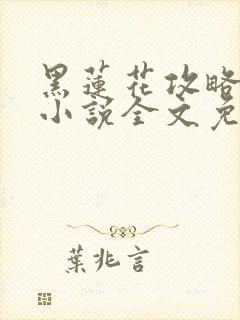 黑蓮花攻略
小說全文免
葉兆言